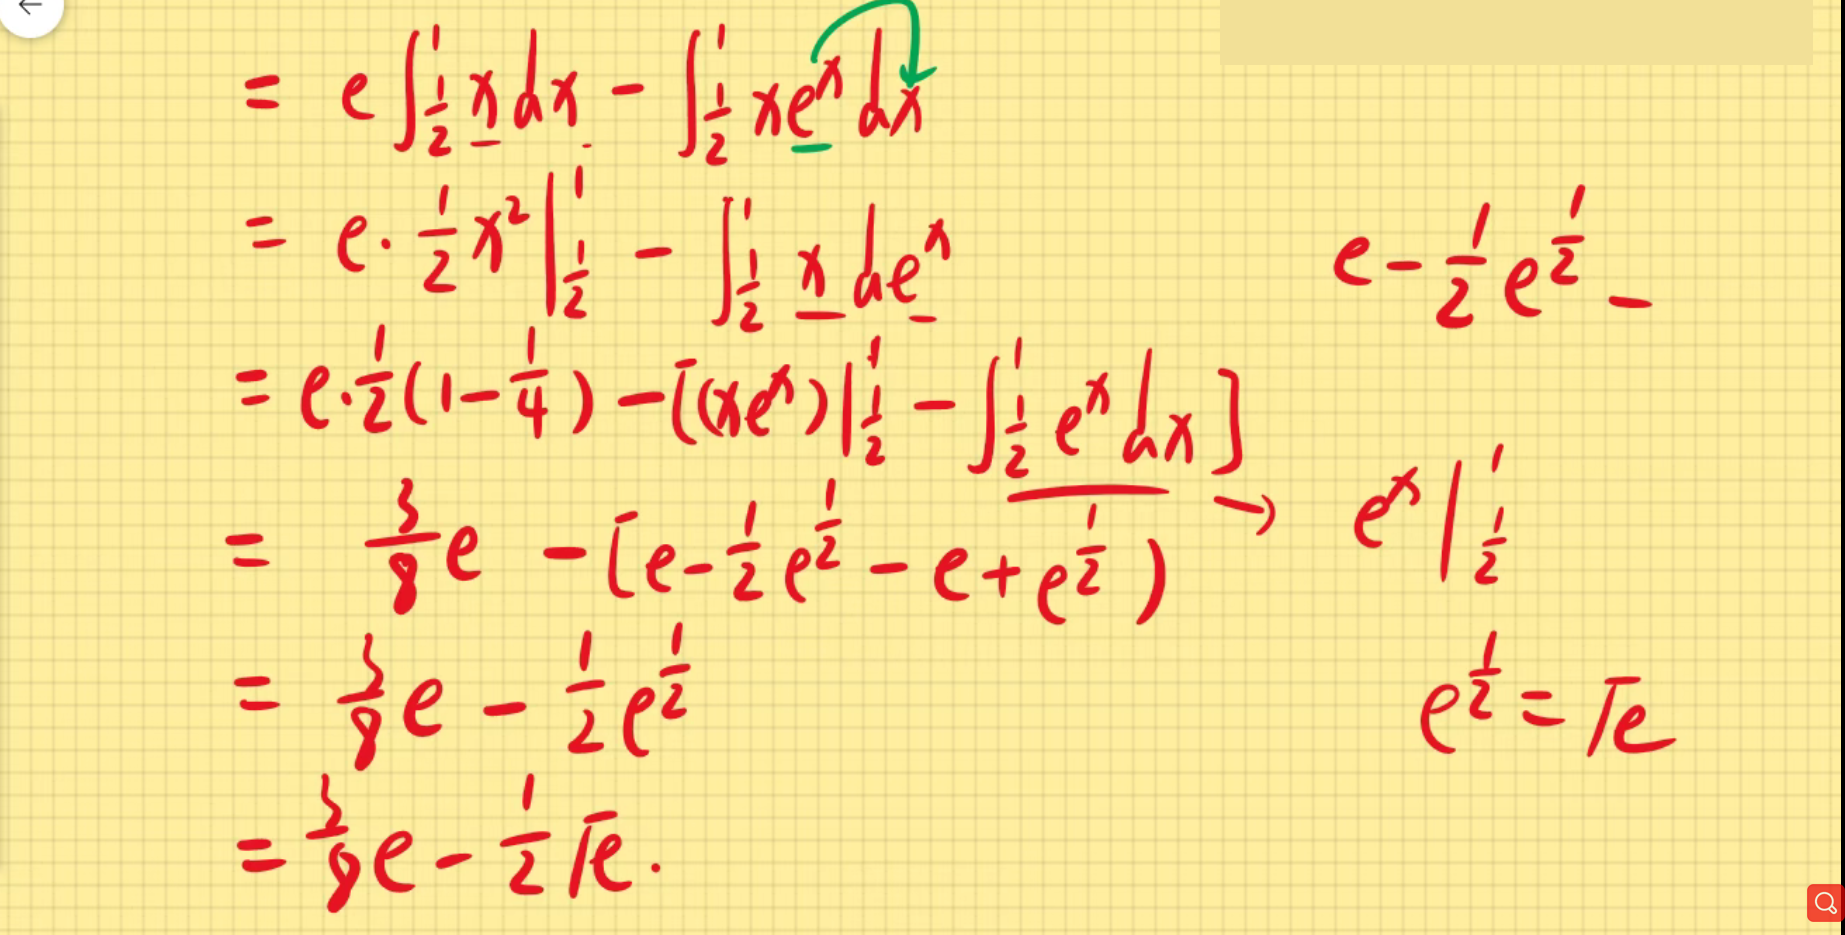 = e∫_{1/2}^{1} x dx - ∫_{1/2}^{1} x e^x dx
= e · 1/2 x² |_{1/2}^{1} - ∫_{1/2}^{1} x de^x
e - 1/2 e^{1/2} -
= e · 1/2 (1 - 1/4) - [(xe^x)|_{1/2}^{1} - ∫_{1/2}^{1} e^x dx]
→ e^x |_{1/2}^{1}
= 3/8 e - [e - 1/2 e^{1/2} - e + e^{1/2})
= 3/8 e - 1/2 e^{1/2}
e^{1/2} = √e
= 3/8 e - 1/2 √e .